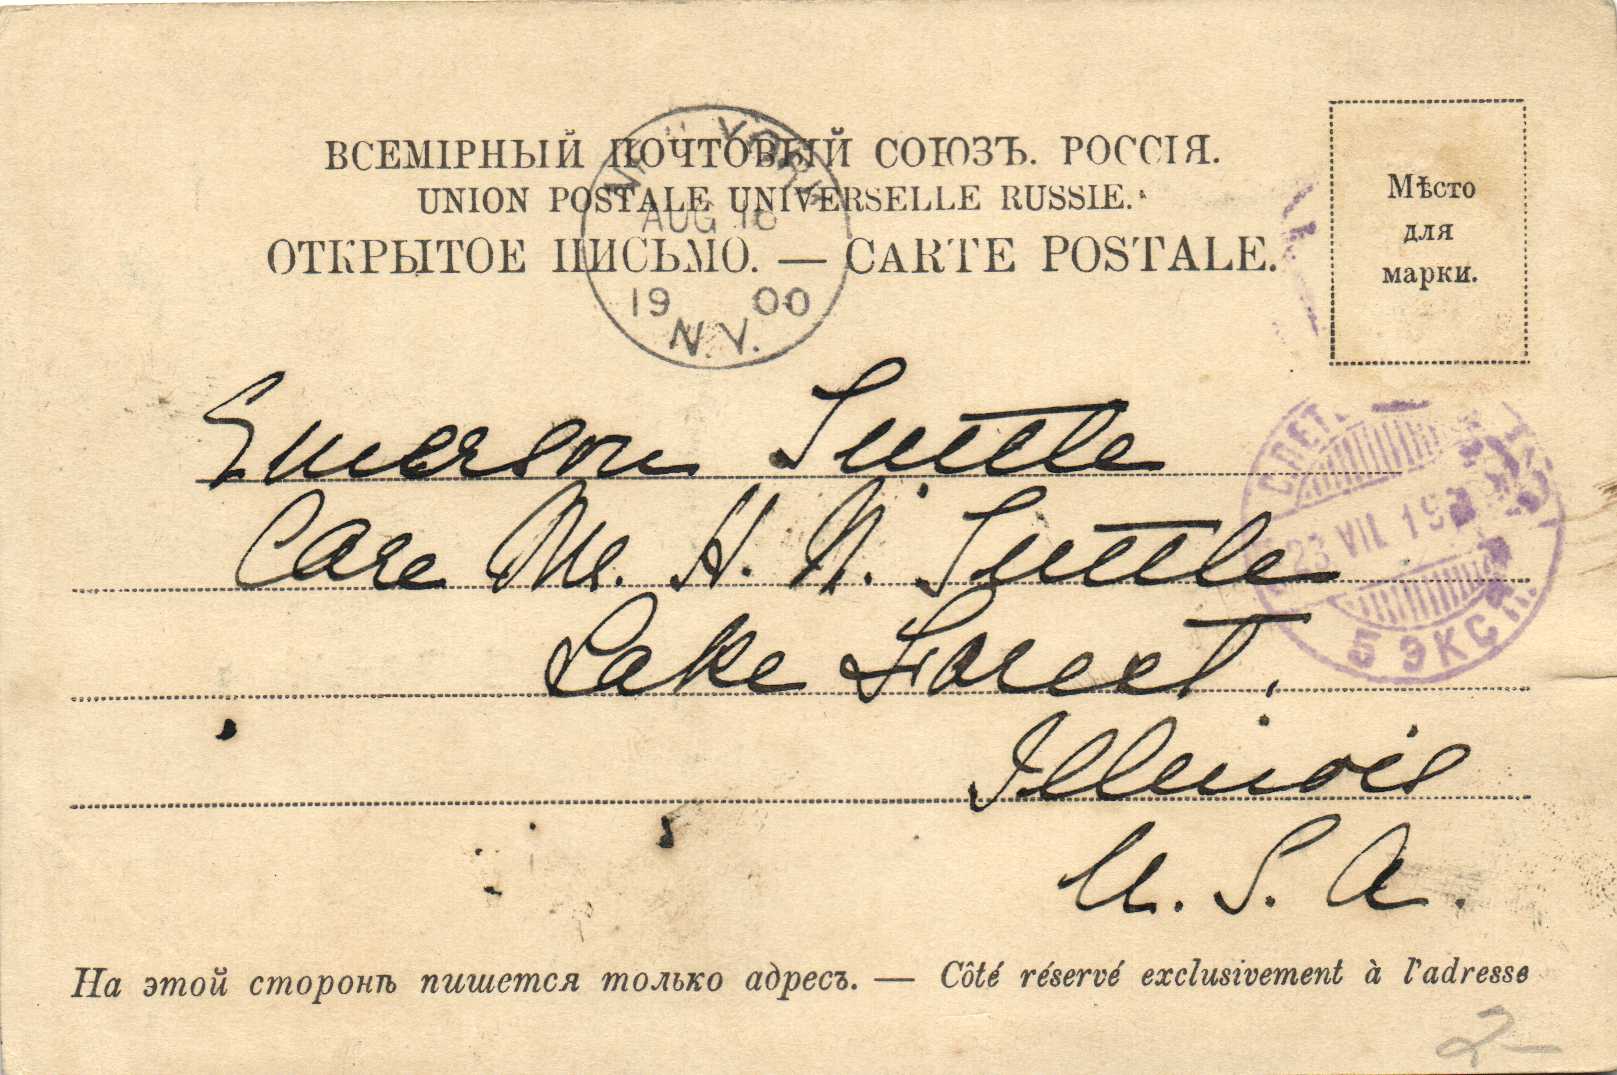 ВСЕМІРНЫЙ ПОЧТОВЫЙ СОЮЗЪ. РОССІЯ.
UNION POSTALE UNIVERSELLE RUSSIE.
ОТКРЫТОЕ ПИСЬМО. — CARTE POSTALE.
Мѣсто
для
марки.
NEW YORK
AUG 16
19 00
N.Y.
Emerson Tuttle
Care Mr. H. N. Tuttle
Lake Forest,
Illinois
U. S. A.
23 VII 19
5 ЭКСП.
На этой сторонѣ пишется только адресъ. — Côté réservé exclusivement à l'adresse
2-